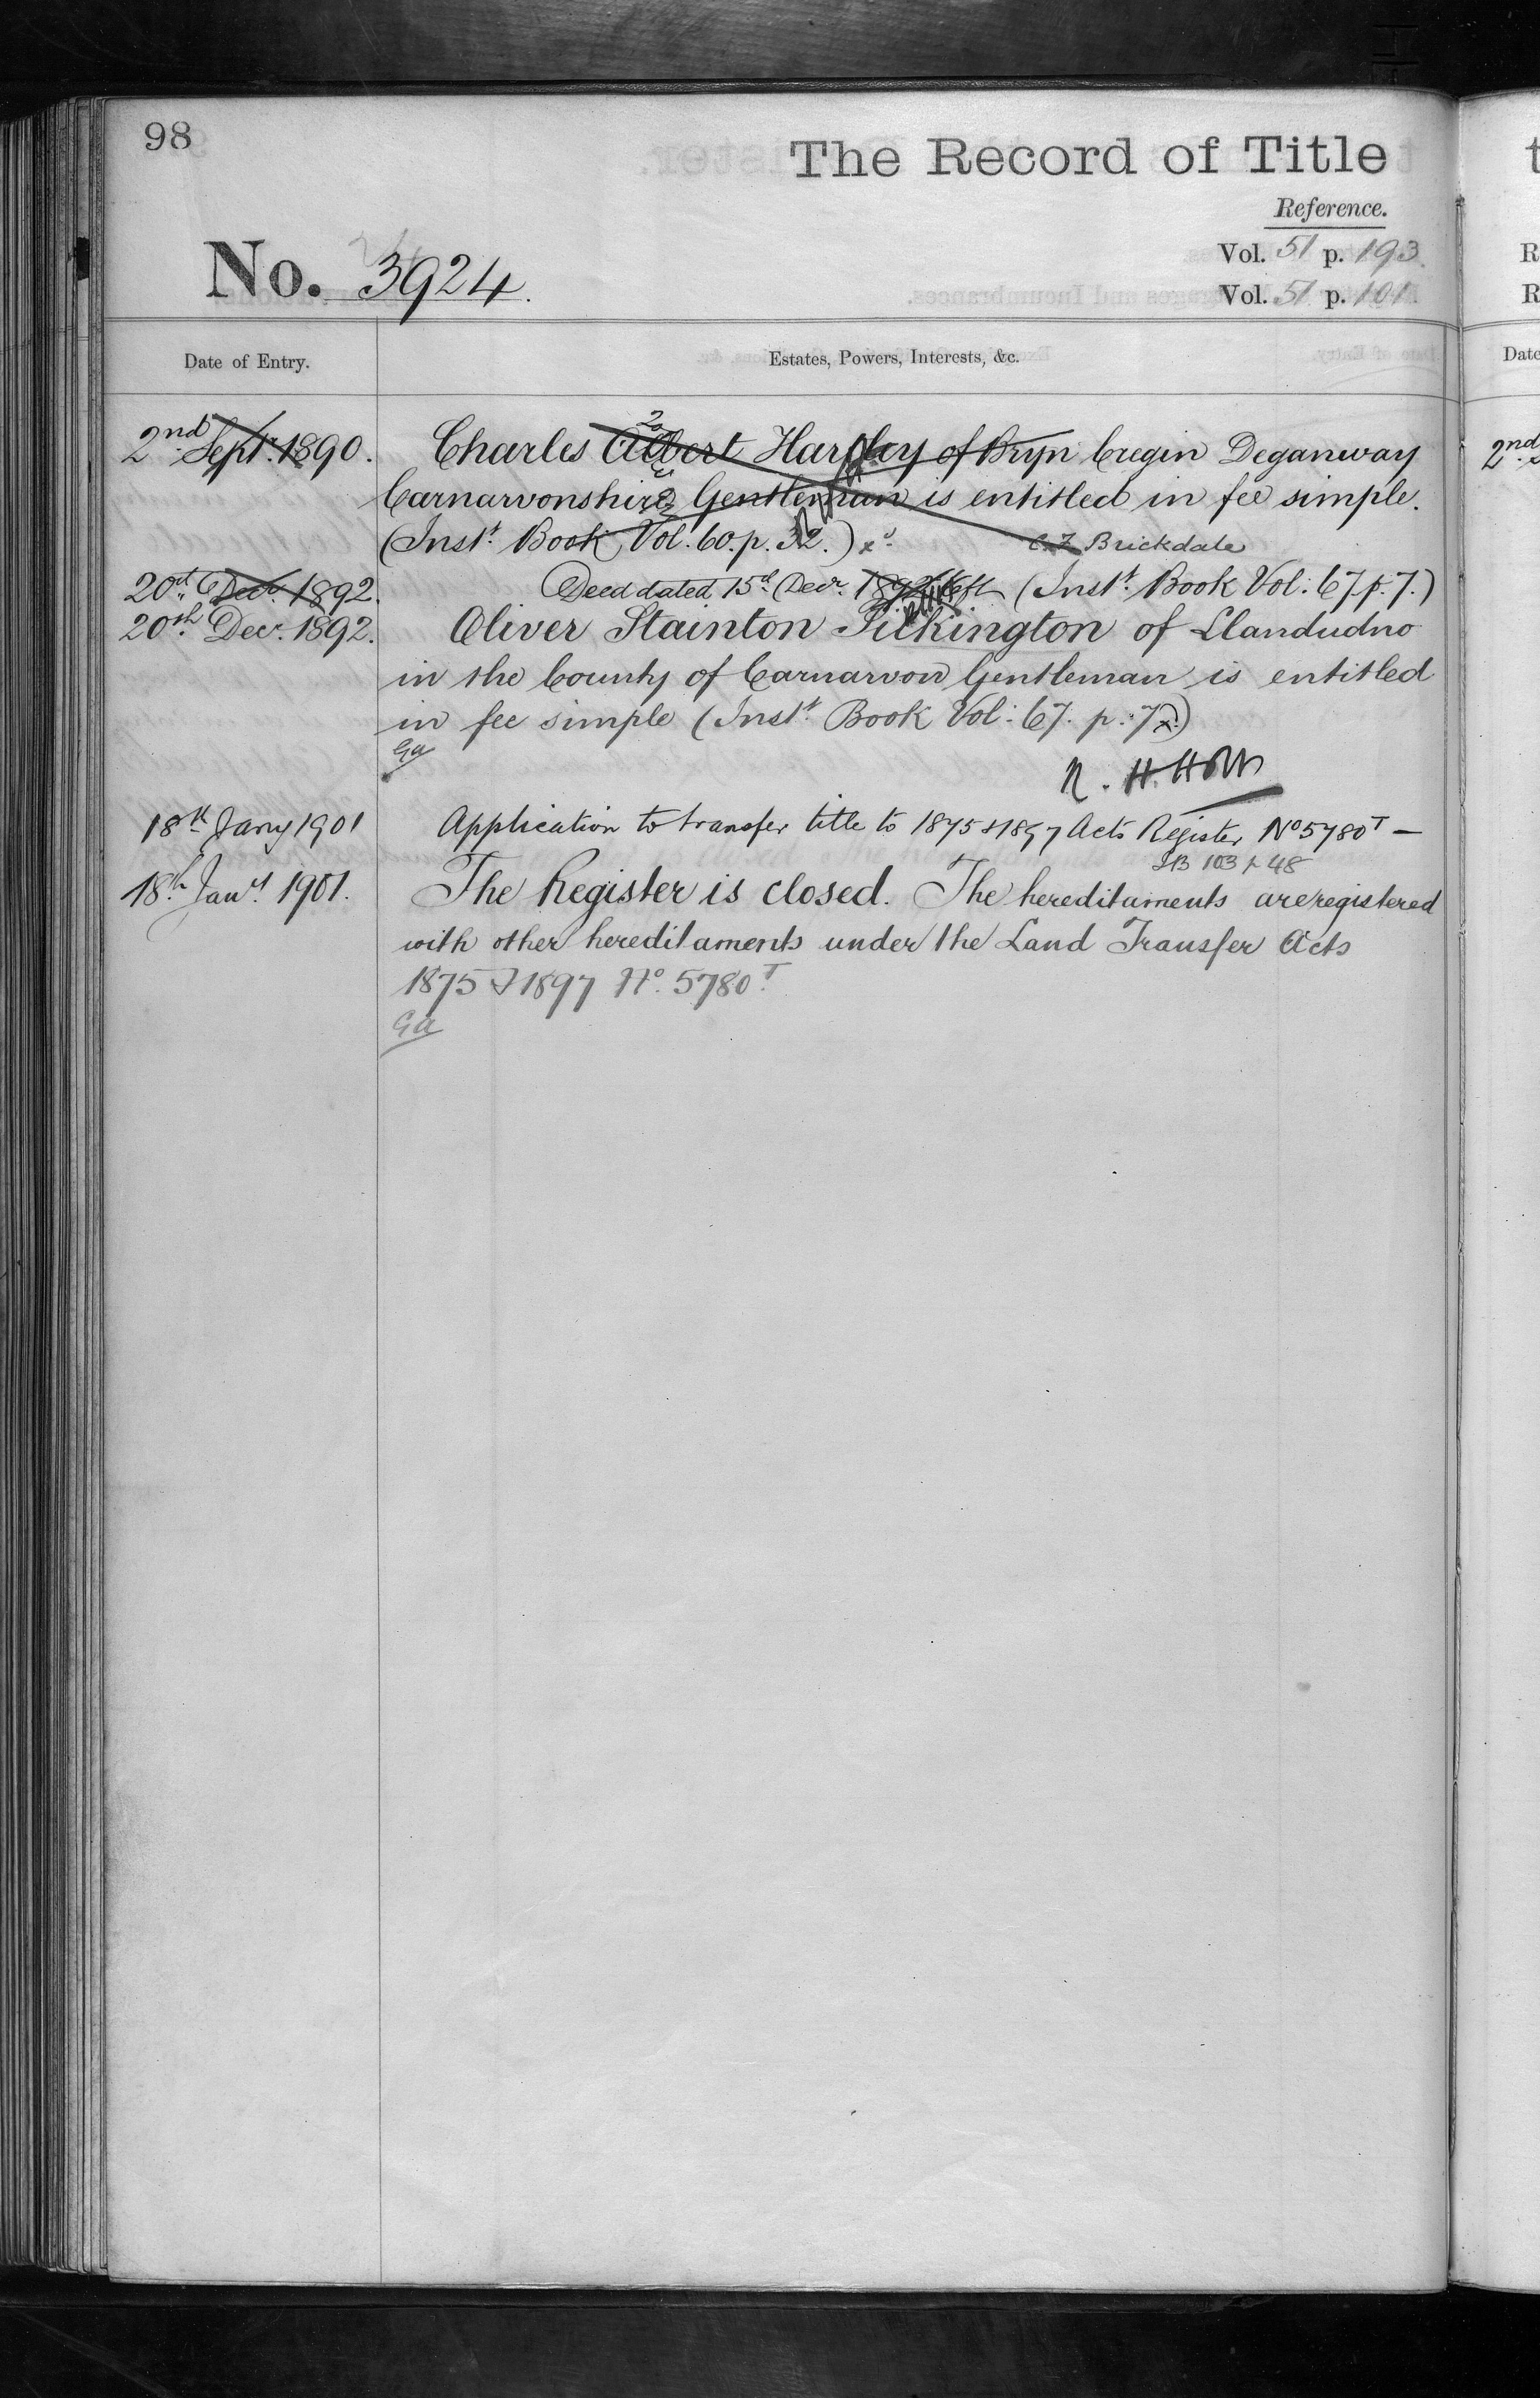 98
The Record of Title
Reference.
No. 3924.
Vol. 51 p. 193
Vol. 51 p. 101
Date of Entry.
Estates, Powers, Interests, &c.
2nd Sept. 1890. Charles Albert Hartley of Bryn Cregin Deganway
Carnarvonshire Gentleman is entitled in fee simple.
(Inst. Book Vol. 60. p. 32.) C.F. Brickdale
20th Decr. 1892. Deed dated 15th Decr. 1892 (Inst. Book Vol: 67. p. 7.)
20th Decr. 1892. Oliver Stainton Pilkington of Llandudno
in the County of Carnarvon Gentleman is entitled
in fee simple (Inst. Book Vol: 67. p. 7.)
Ga
R. H. Holt
18th Jany 1901 Application to transfer title to 1875 & 1897 Acts Register No 5780T —
IB 103 p 48
18th Jany 1901. The Register is closed. The hereditaments are registered
with other hereditaments under the Land Transfer Acts
1875 & 1897 No. 5780T
Ga
R
R
Date
2nd